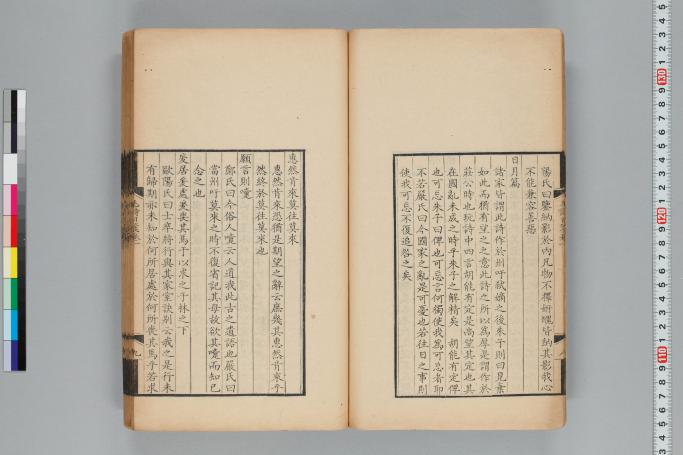 陽氏曰鑒納影於內凡物不擇妍媸皆納其影我心
不能兼容善惡
日月篇
諸家皆謂此詩作於州吁弒嫡之後朱子則曰見棄
如此而猶有望之之意此詩之所以為厚是謂作於
莊公時也玩詩中四言胡能有定是尚望其定也其
在國亂未成之時乎朱子之解精矣 胡能有定俾
也可忘朱子曰俾也可忘言何獨使我為可忘者耶
不若嚴氏曰今國家之亂是可憂也若往日之事則
使我可忘不復追咎之矣
惠然肯來莫往莫來
惠然肯來恐猶是期望之辭云庶幾其惠然肯來乎
然終於莫往莫來也
願言則嚔
鄭氏曰今俗人嚔云人道我此古之遺語也嚴氏曰
當州吁莫來之時不復省記其母故欲其嚔而知已
念之也
爰居爰處爰喪其馬于以求之于林之下
歐陽氏曰士卒將行與其家室訣別云我之是行未
有歸期亦未知於何所居處於何所喪其馬乎若求
九